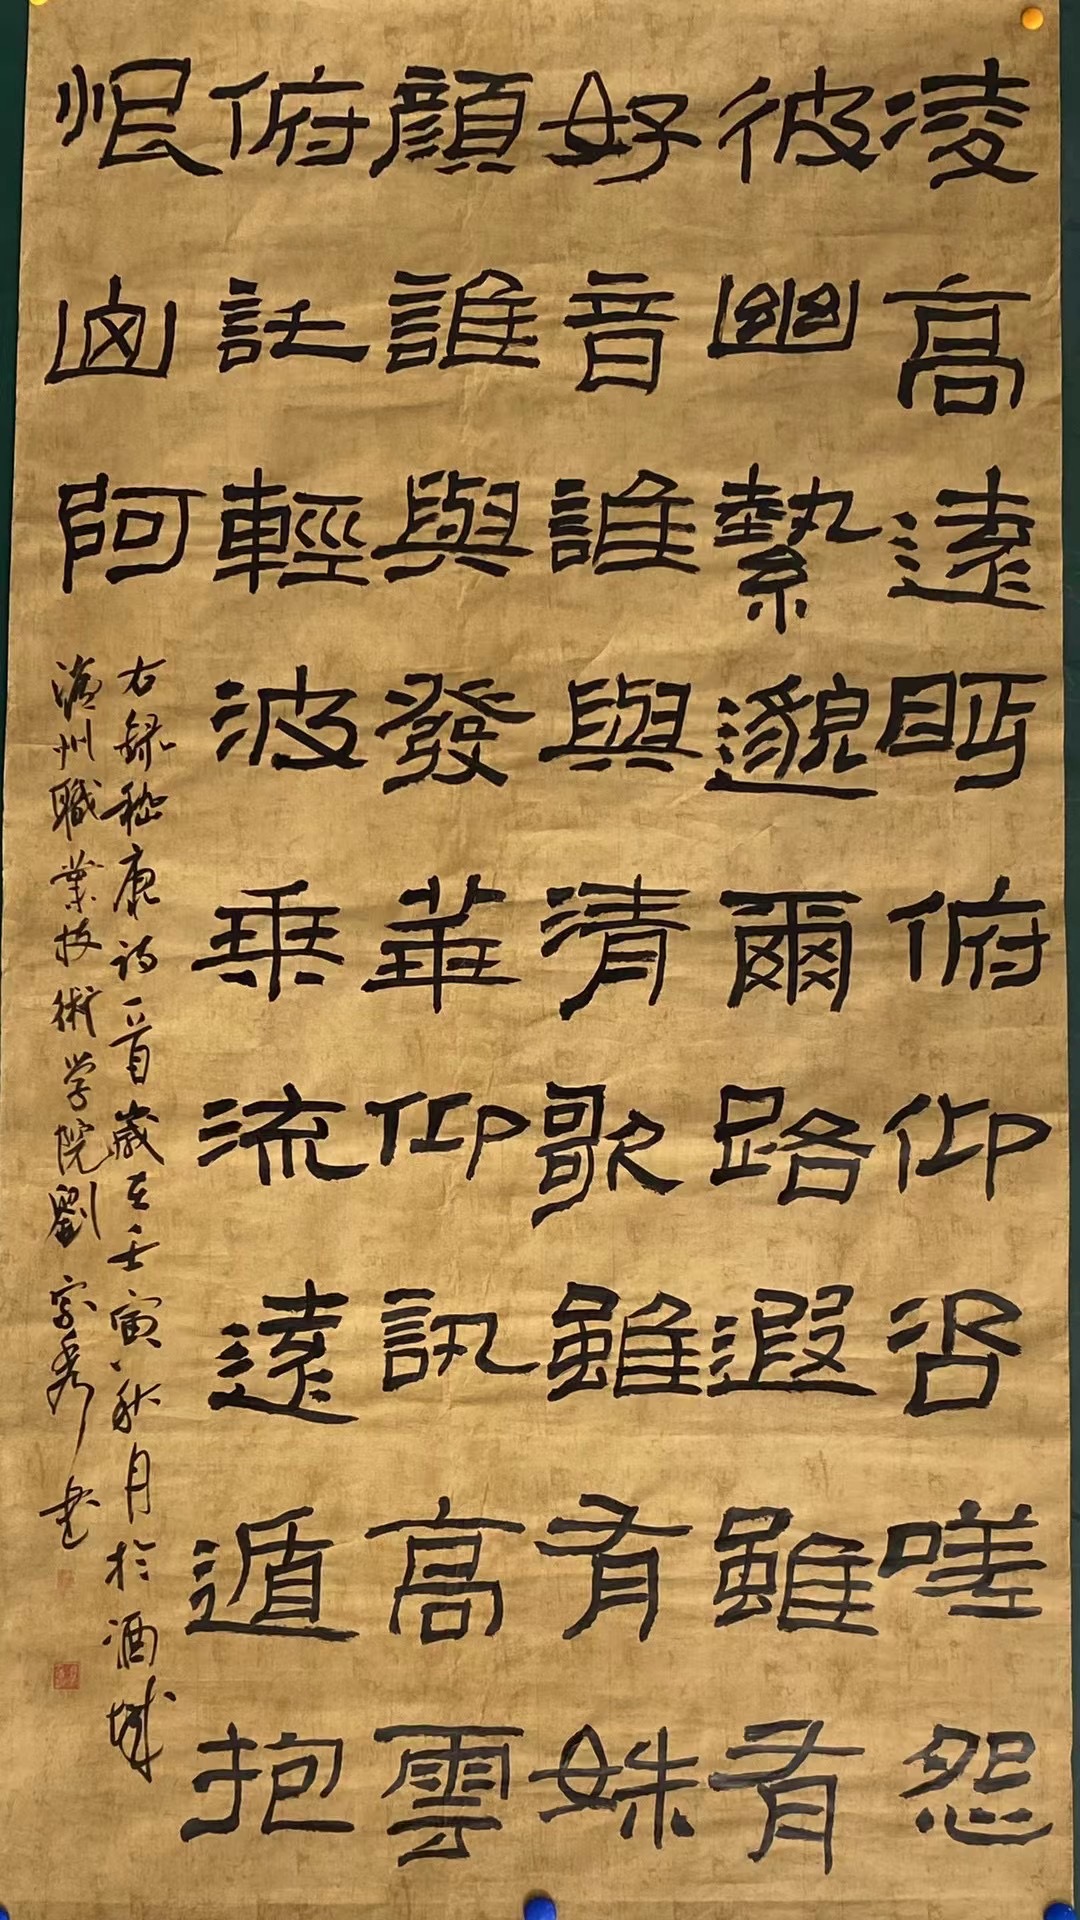 凌高遠眄俯仰咨嗟怨
彼幽縶邈爾路遐雖有
好音誰與清歌雖有姝
顏誰與發華仰訊高雲
俯託輕波乘流遠遁抱
恨阿
右錄嵇康詩一首歲在壬寅秋月於酒城
瀘州職業技術学院劉秀書